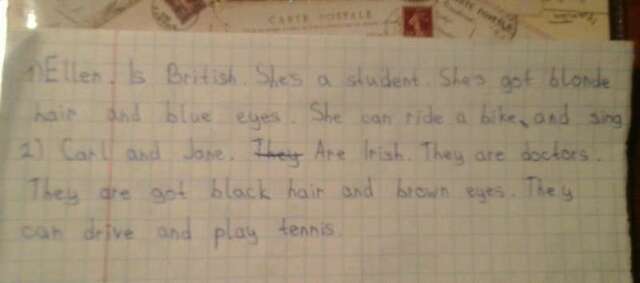 CARTE POSTALE
1) Ellen. Is British. She's a student. She's got blonde
hair and blue eyes. She can ride a bike, and sing
2) Carl and Jane. They Are Irish. They are doctors.
They are got black hair and brown eyes. They
can drive and play tennis.